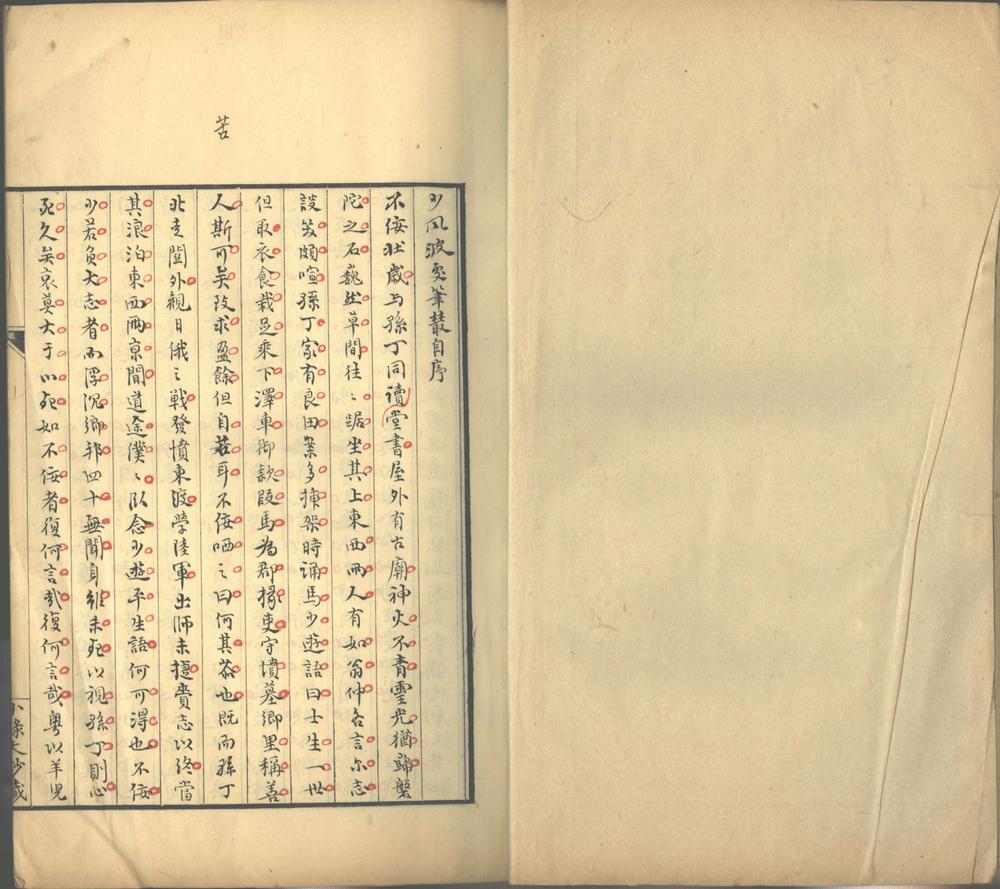 苦
少風波處筆叢自序
不佞壯歲与孫丁同讀堂書屋外有古廟神火不青靈光猶歸磐
陀之石巍然草間往〻踞坐其上東西兩人有如翁仲各言尔志
談笑頗喧孫丁家有良田業多揀架時誦馬少遊語曰士生一世
但取衣食裁足乘下澤車御款段馬為郡掾吏守墳墓鄉里稱善
人斯可矣致求盈餘但自苦耳不佞哂之曰何其恭也既而孫丁
北走閶外觀日俄之戰發憤東渡學陸軍出師未捷賫志以終當
其浪泊東西兩京間道途僕〻臥念少遊平生語何可得也不佞
少若負大志者而浮沉鄉邦四十無聞身雖未死以視孫丁則心
死久矣哀莫大于心死如不佞者復何言哉復何言哉粤以羊兒